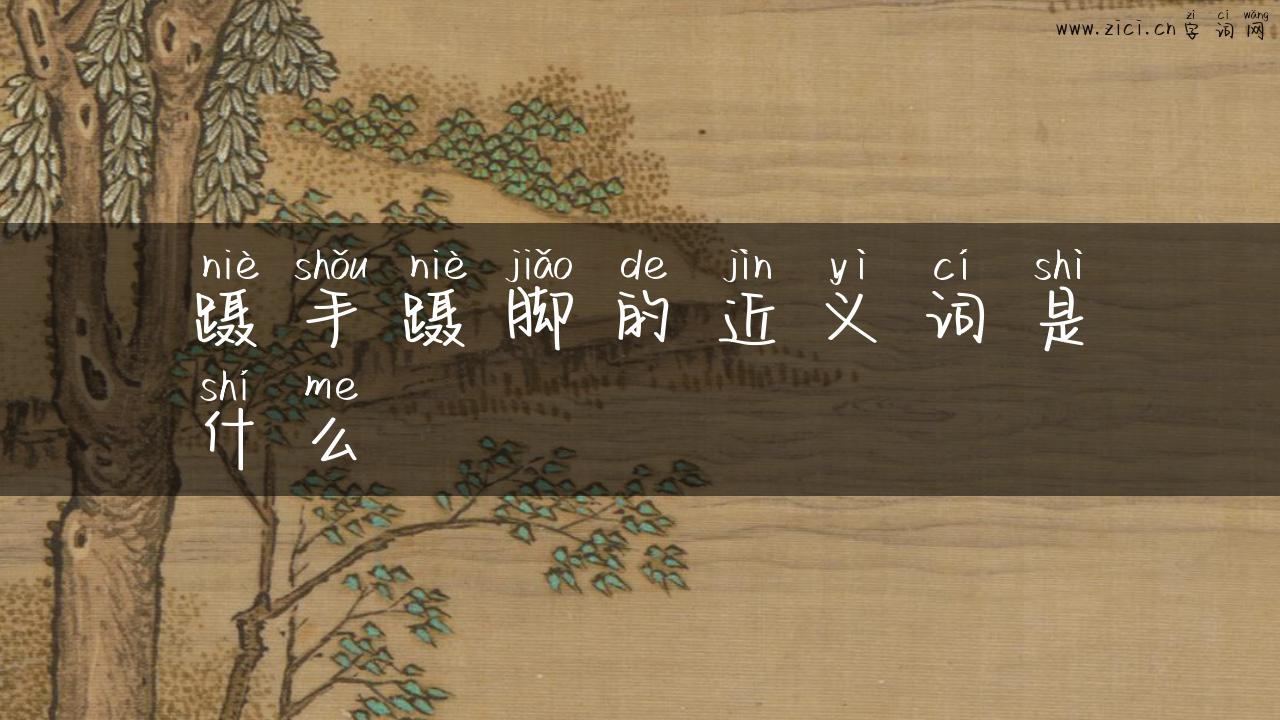 zì cí wǎng
www.zici.cn 字词网
niè shǒu niè jiǎo de jìn yì cí shì
蹑手蹑脚的近义词是
shí me
什么